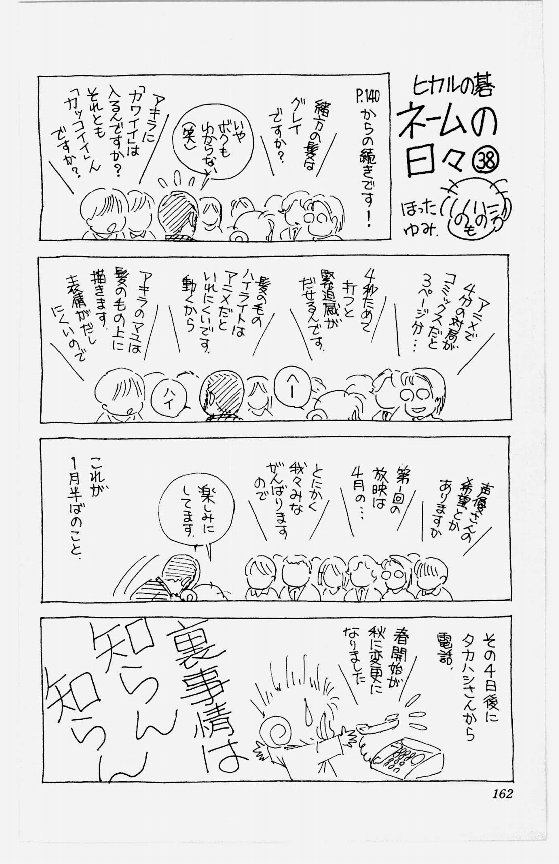 ヒカルの碁
ネームの
日々㊳
ほった
ゆみ
P.140からの続きです！
緒方の髪は
グレイ
ですか？
いや
ボクも
わからない
(笑)
アキラに
「カワイイ」は
入るんですか？
それとも
「カッコイイ」ん
ですか？
アニメで
4分の対局が
コミックスだと
3ページ分…
4秒ためて
打つと
緊迫感が
だせるんです。
ヘー
髪の毛の
ハイライトは
アニメだと
いれにくいです。
動くから
ハイ
アキラのマユは
髪の毛の上に
描きます。
表情がだし
にくいので
声優さんの
希望とか
ありますか
第一回の
放映は
4月の…
とにかく
我々みな
がんばります
ので
楽しみに
してます。
これが
1月半ばのこと。
その4日後に
タカハシさんから
電話。
春開始が
秋に変更に
なりました
裏事情は
知らん
知らん
162